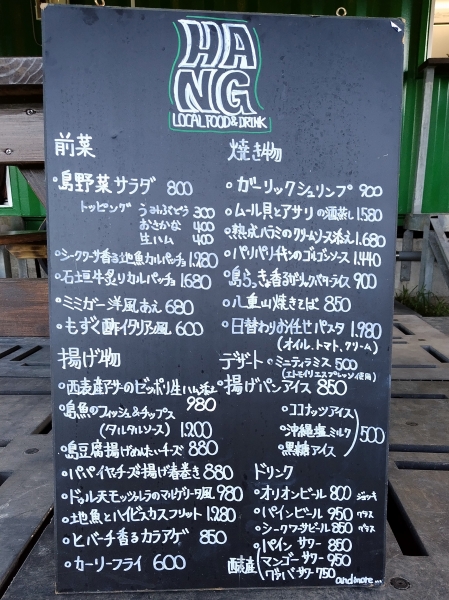 HA
NG
LOCAL FOOD & DRINK
前菜
・島野菜サラダ 800
トッピング うみぶどう 300
おさかな 400
生ハム 400
・シークワーサー香る地魚カルパッチョ 1,280
・石垣牛炙りカルパッチョ 1,680
・ミミガー洋風あえ 680
・もずく酢イタリアン風 600
揚げ物
・西表産アサのゼッポリ生ハム添え 980
・島魚のフィッシュ&チップス
(タルタルソース) 1,200
・島豆腐揚げめんたいチーズ 880
・パパイヤチーズ揚げ春巻き 880
・ドゥル天モッツァレラのマルゲリータ風 980
・地魚とハイビスカスフリット 1,280
・ヒバーチ香るカラアゲ 850
・カーリーフライ 600
焼き物
・ガーリックシュリンプ 900
・ムール貝とアサリの酒蒸し 1,580
クリームソース添え 1,680
・パリパリチキンのゴルゴソース 1,440
・島らっきょ香るガーリックバターライス 900
・八重山焼きそば 850
・日替わりお任せパスタ 1,980
(オイル、トマト、クリーム)
デザート ・ミニティラミス 500
・揚げパンアイス 850
・ココナッツアイス
・沖縄塩ミルク
・黒糖アイス
500
ドリンク
・オリオンビール 800 ジョッキ
・パインビール 950 グラス
・シークワーサービール 850 グラス
西表産
パインサワー 850
マンゴーサワー 950
グァバサワー 750
and more...